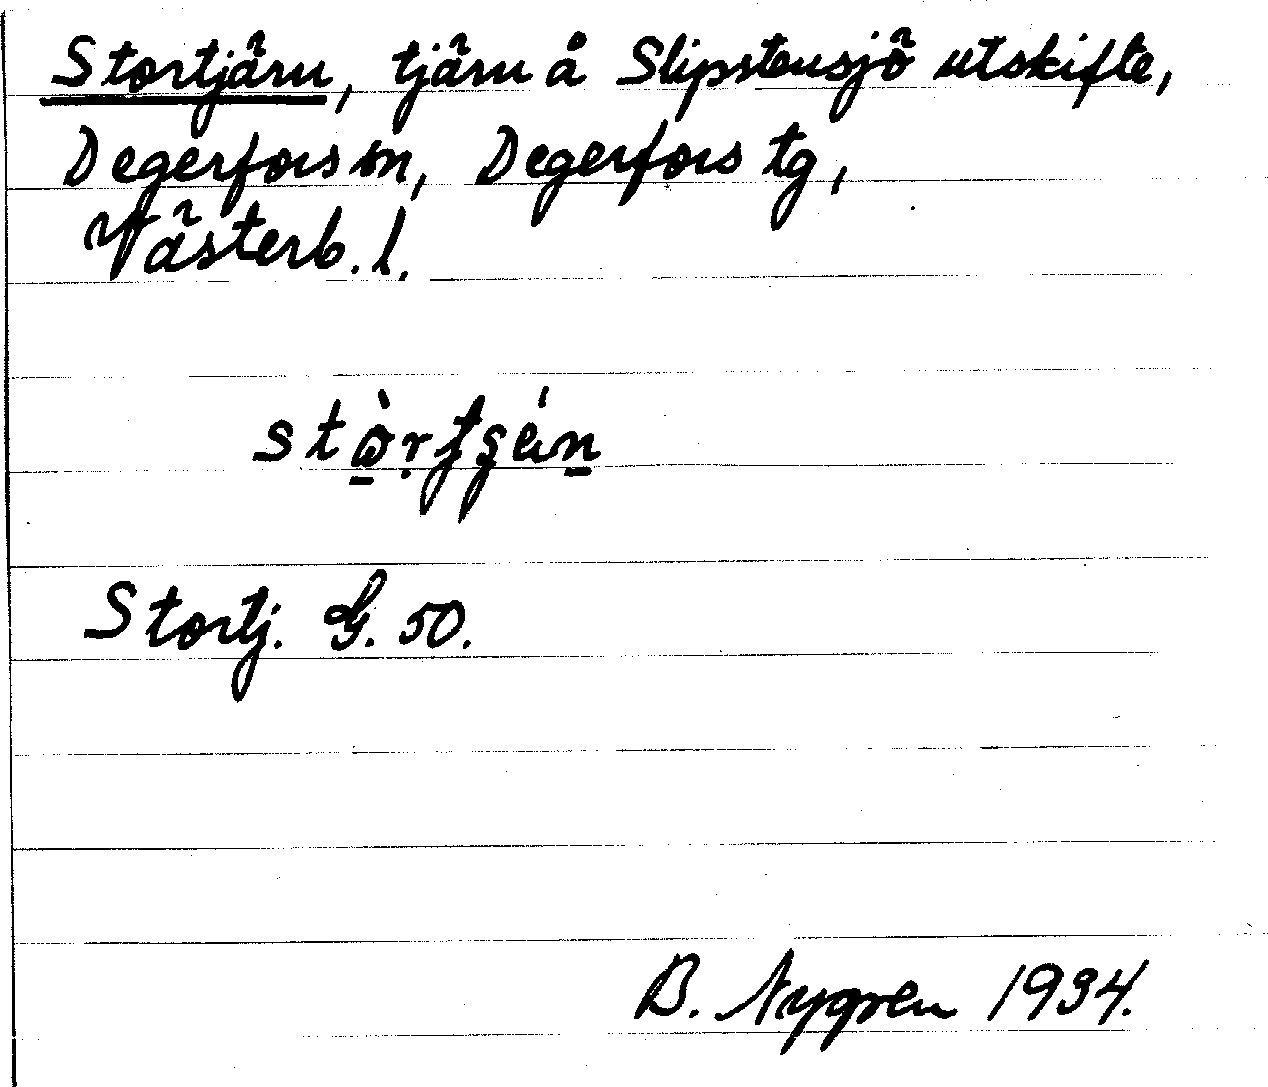 Stortjärn, tjärn å Slipstensjö utskifte,
Degerfors sn, Degerfors tg,
Västerb. l.
Stortj. G. 50.
B. Nygren 1934.